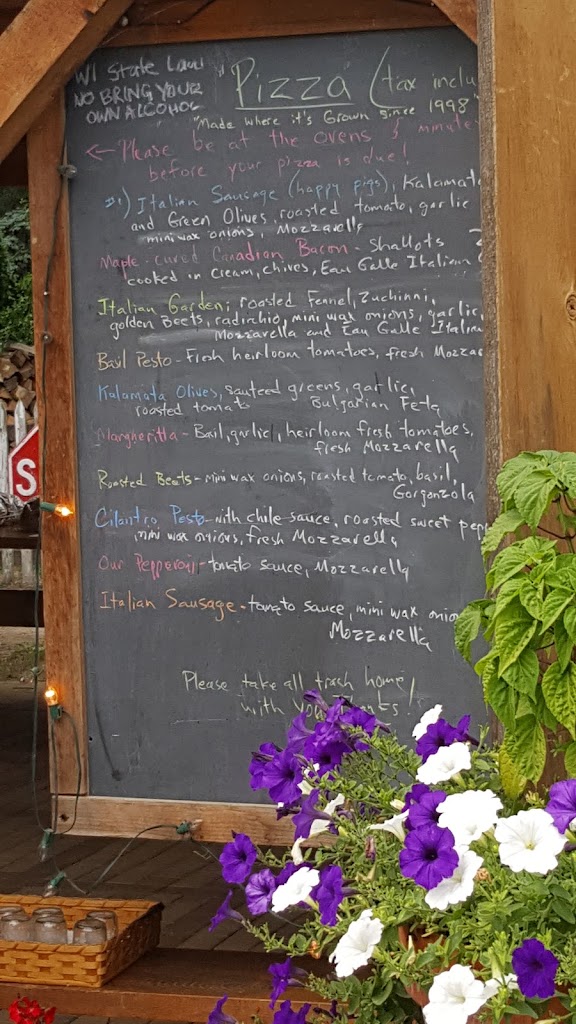 WI State Law
NO BRING YOUR
OWN ALCOHOL
"Pizza" (tax inclu
"Made where it's Grown since 1998"
← Please be at the ovens 5 minute
before your pizza is due!
#1) Italian Sausage (happy pigs), Kalamata
and Green Olives, roasted tomato, garlic
mini wax onions, Mozzarella
Maple-cured Canadian Bacon - Shallots
cooked in cream, chives, Eau Galle Italian
Italian Garden; roasted Fennel, Zuchinni,
golden Beets, radichio, mini wax onions, garlic,
Mozzarella and Eau Galle Italian
Basil Pesto - Fresh heirloom tomatoes, fresh Mozzar
Kalamata Olives, sauteed greens, garlic,
roasted tomato Bulgarian Feta
Margheritta - Basil, garlic, heirloom fresh tomatoes,
fresh Mozzarella
Roasted Beets - mini wax onions, roasted tomato, basil,
Gorgonzola
Cilantro Pesto - with chile sauce, roasted sweet pepp
mini wax onions, fresh Mozzarella
Our Pepperoni - tomato sauce, Mozzarella
Italian Sausage - tomato sauce, mini wax onion
Mozzarella
Please take all trash home
with you. Thanks!
S